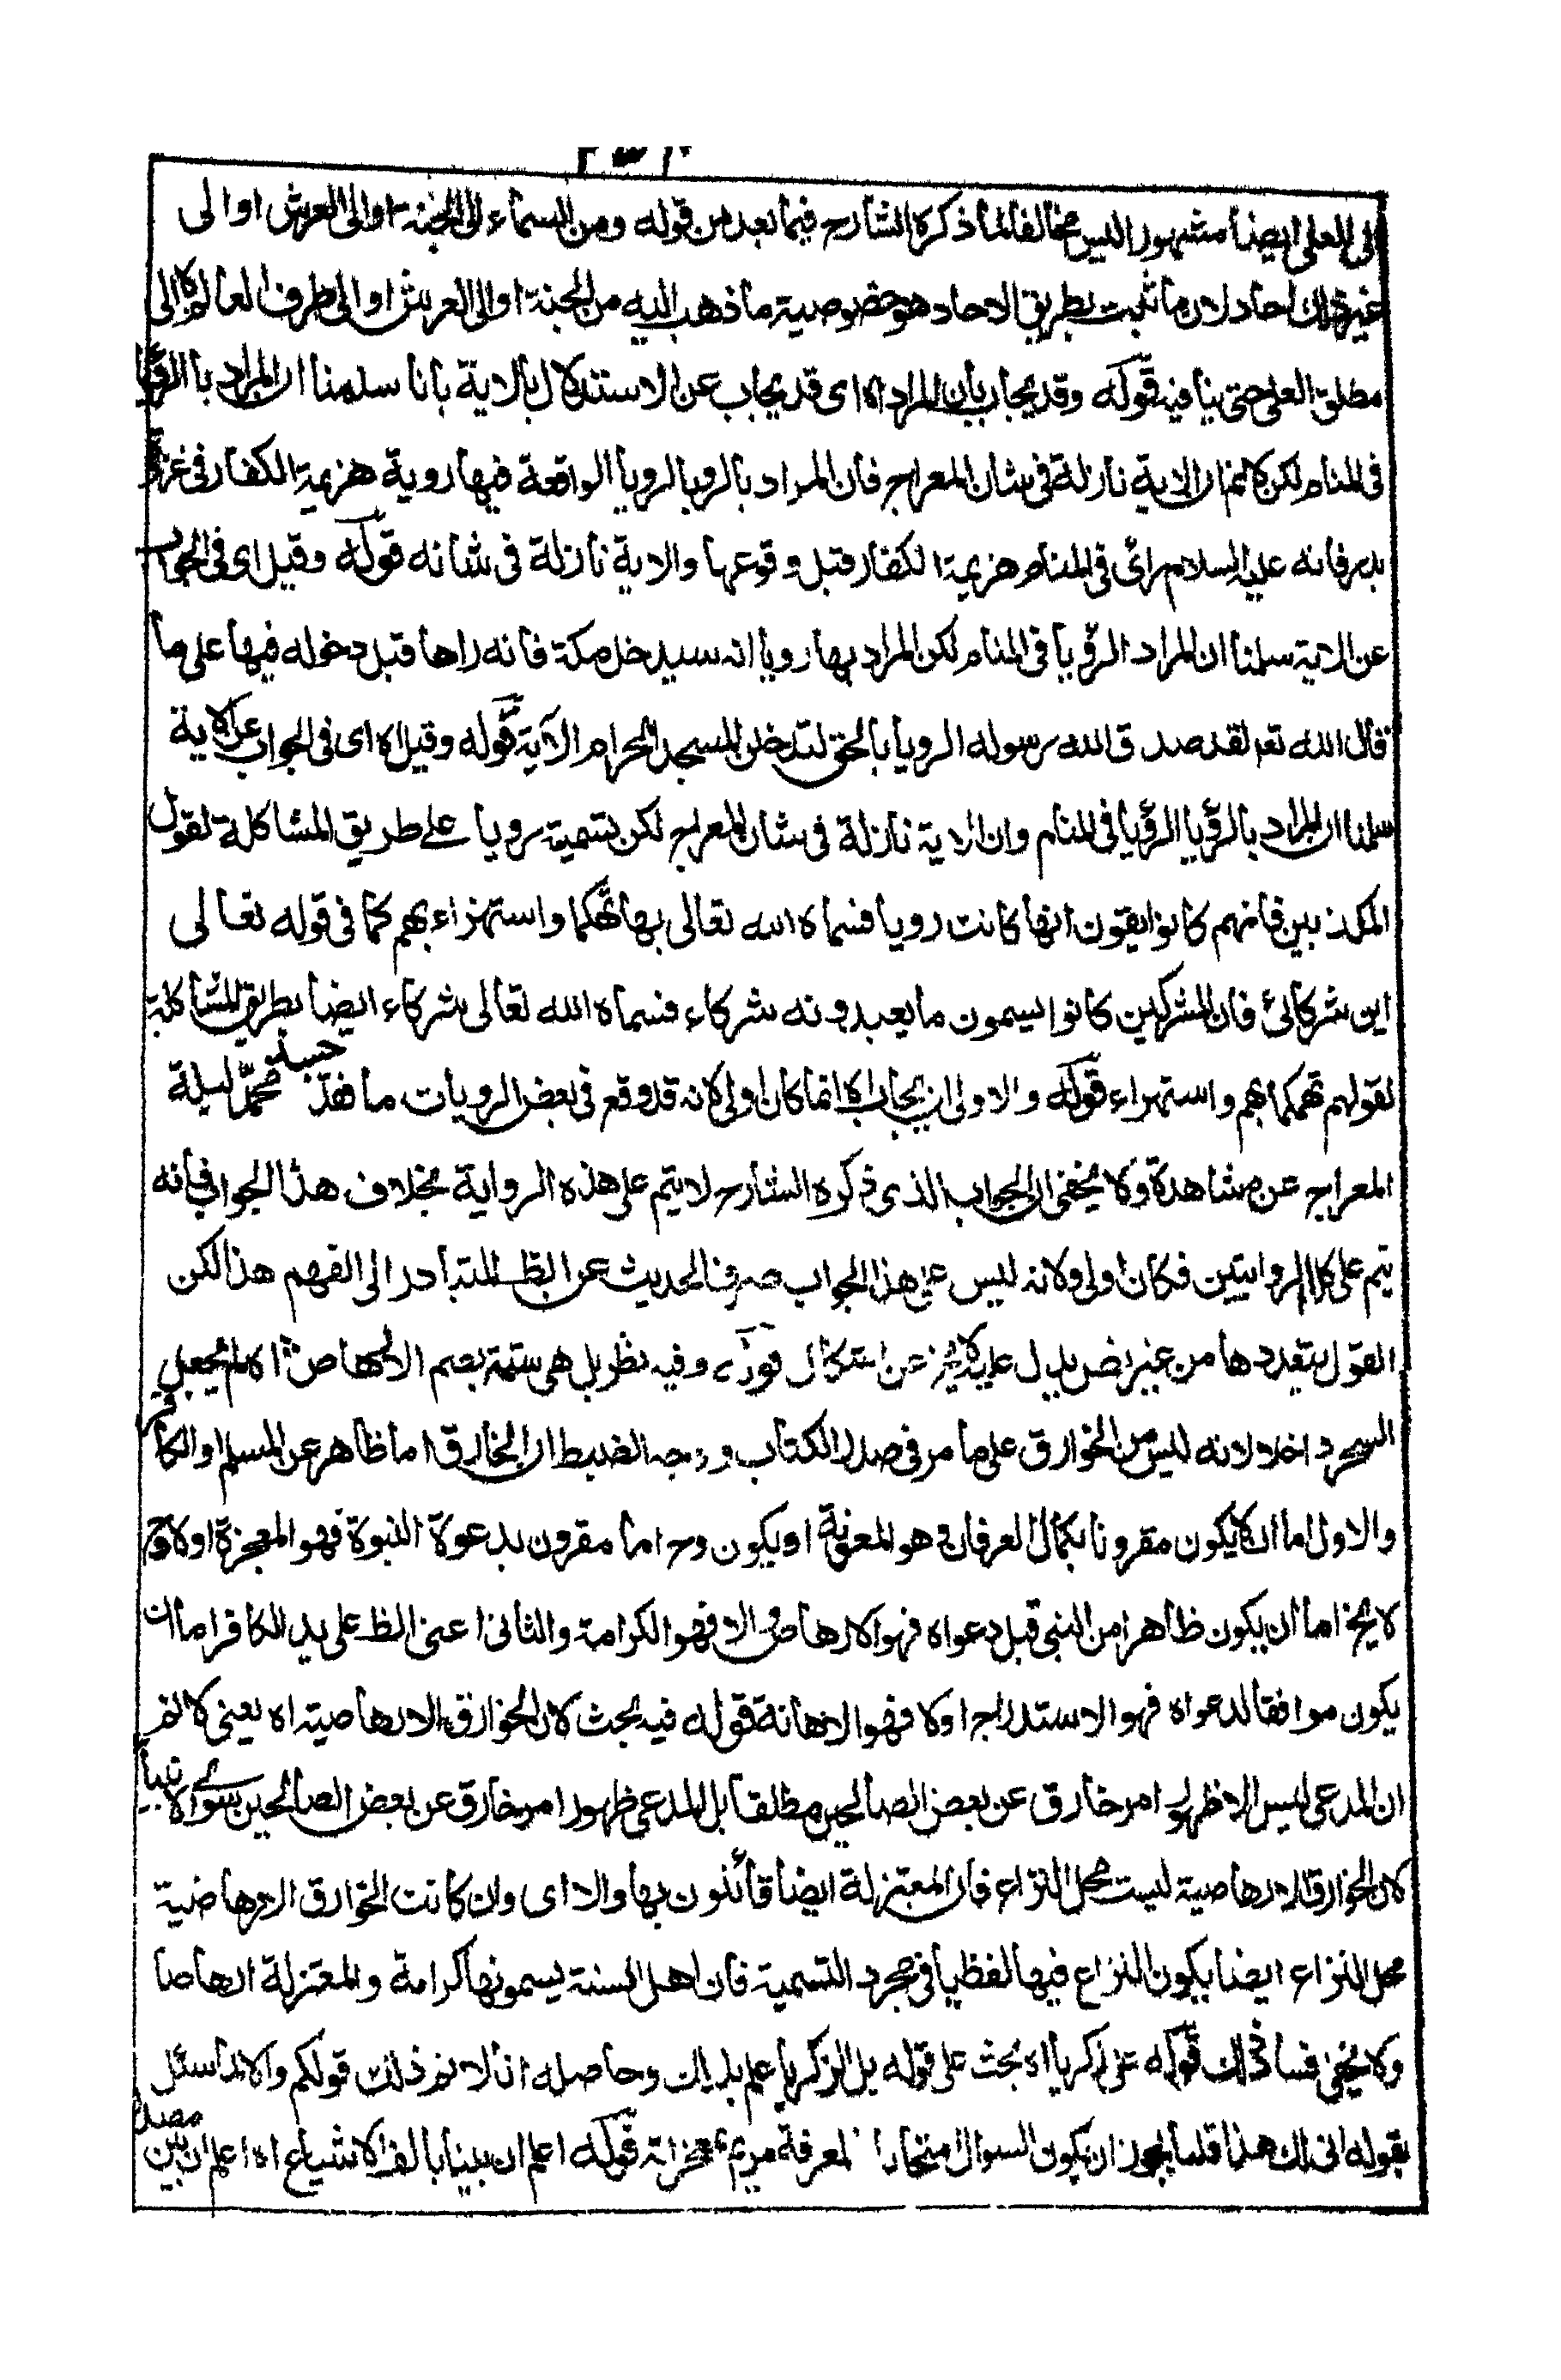 الى العلى ايضا مشهور اليس مخالفا لما ذكره الشارح فيما بعد من قوله ومن السماء الى الجنة او الى العرش او الى
غير ذلك احاد لان ما ثبت بطريق الاحاد هو خصوصية ما ذهب اليه من الجنة او الى العرش او الى طرف العالم لا الى
مطلق العلى حتى ينافيه قوله وقد يجاب بان المراد اه اى قد يجاب عن الاستدلال بالاية بانا سلمنا ان المراد بالرؤيا
فى المنام لكن لانم ان الاية نازلة فى شان المعراج فان المراد بالرويا الرويا الواقعة فيها روية هزيمة الكفار فى غزوة
بدر فانه عليه السلام رائ فى المنام هزيمة الكفار قبل وقوعها والاية نازلة فى شانه قوله وقيل اى فى الجواب
عن الاية سلمنا ان المراد الرؤيا فى المنام لكن المراد بها رويا انه سيدخل مكة فانه راها قبل دخوله فيها على ما
قال الله تعر لقد صدق الله رسوله الرويا بالحق لتدخلن المسجد الحرام الآية قوله وقيل اه اى فى الجواب عن الاية
سلمنا ان المراد بالرؤيا الرؤيا فى المنام وان الاية نازلة فى شان المعراج لكن تسمية رويا على طريق المشاكلة لقول
المكذبين فانهم كانوا يقون انها كانت رويا فسماه الله تعالى بها تهكما واستهزاء بهم كما فى قوله تعالى
اين شركائى فان المشركين كانوا يسمون ما يعبدونه شركاء فسماه الله تعالى شركاء ايضا بطريق المشاكلة
لقولهم تهكما بهم واستهزاء قوله والاولى ان يجاب اه انما كان اولى لانه قد وقع فى بعض الرويات ما فقد جسد محمد ليلة
المعراج عن مشاهدة ولا يخفى ان الجواب الذى ذكره الشارح لا يتم على هذه الرواية بخلاف هذا الجواب فانه
يتم على كلا الروايتين فكان اولى ولانه ليس على هذا الجواب صرف الحديث عن الظ المتبادر الى الفهم هذا لكن
القول بتعددها من غير نص يدل عليه لا يخ عن استدلال قوله وفيه نظر بل هى ستة بضم الارهاص اه لم يجعل
السحر داخلا لانه ليس من الخوارق على ما مر فى صدر الكتاب وجه الضبط ان الخارق اما ظاهر عن المسلم او الكافر
والاول اما ان لا يكون مقرونا بكمال العرفان فهو المعونة او يكون وح اما مقرون بدعوة النبوة فهو المعجزة اولا وح
لا يخ اما ان يكون ظاهرا من النبى قبل دعواه فهو الارهاص والا فهو الكرامة والثانى اعنى الظ على يد الكافر اما ان
يكون موافقا لدعواه فهو الاستدراج اولا فهو الاهانة قوله فيه بحث لان الخوارق الارهاصية اه يعنى لا نم
ان المدعى ليس الا ظهور امر خارق عن بعض الصالحين مطلقا بل المدعى ظهور امر خارق عن بعض الصالحين سوى الانبياء
لان الخوارق الارهاصية ليست محل النزاع فان المعتزلة ايضا قائلون بها والا اى وان كانت الخوارق الارهاصية
محل النزاع ايضا يكون النزاع فيها لفظيا فى مجرد التسمية فان اهل السنة يسمونها كرامة والمعتزلة ارهاصا
ولا يخفى فساد ذلك قوله على زكريا اه بحث على قوله بل الزكريا علم بذلك وحاصله انا لا نم ذلك قولكم والا لما سئل
بقوله انى لك هذا قلنا يجوز ان يكون السوال امتحانا لمعرفة مريم معجزاته قوله اعلم ان بينا بالف الاشباع اه اعلم ان بين مصدر